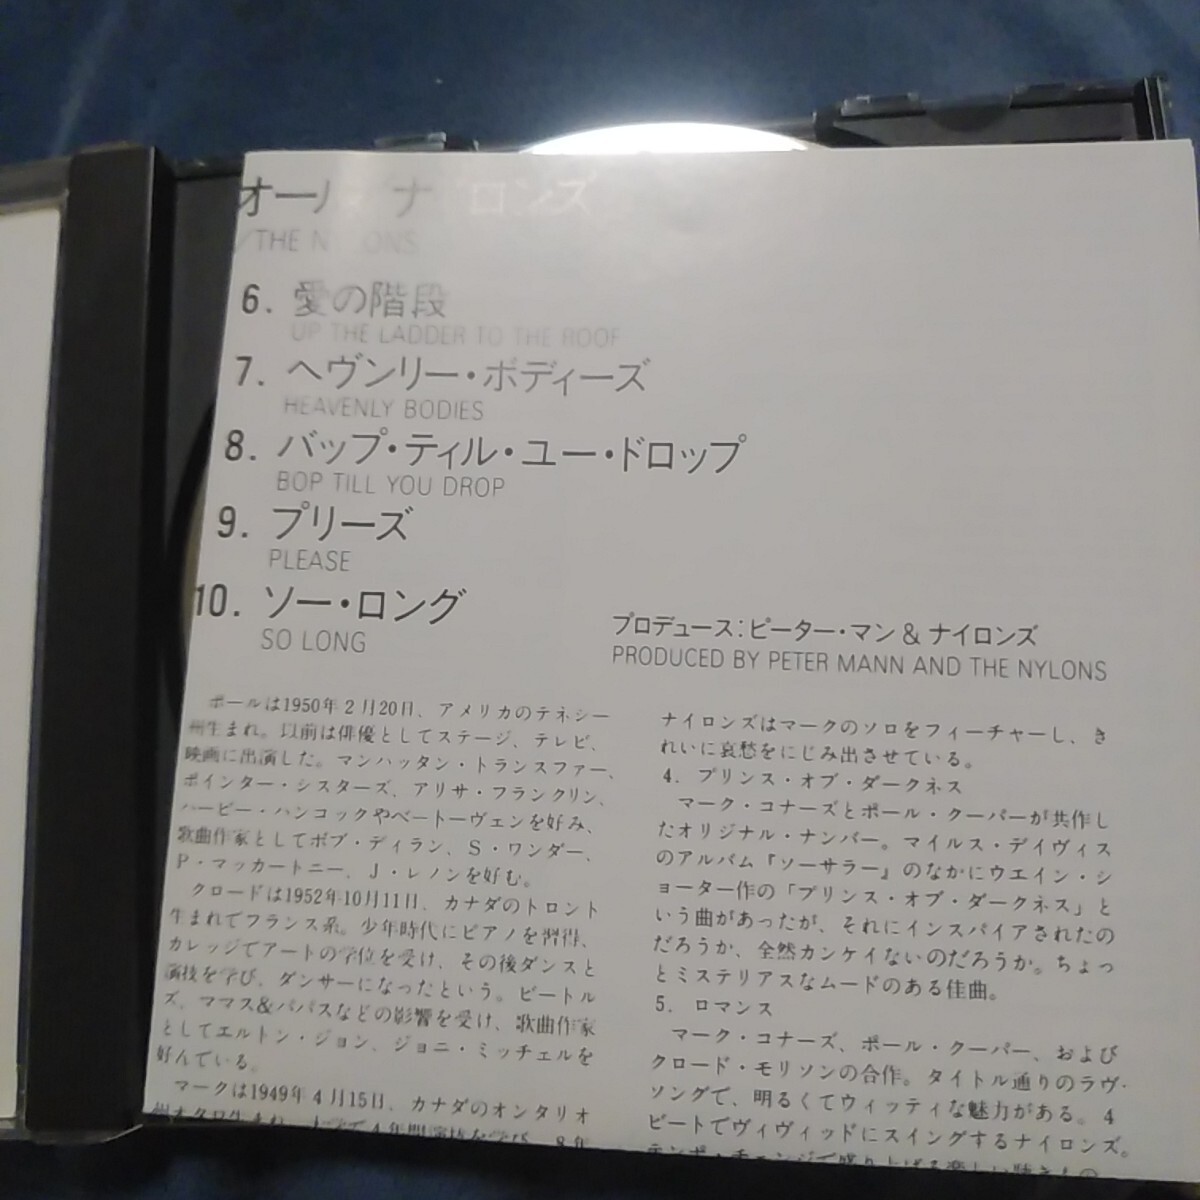 オール ナイロンズ
/THE NYLONS
6. 愛の階段
UP THE LADDER TO THE ROOF
7. ヘヴンリー・ボディーズ
HEAVENLY BODIES
8. バップ・ティル・ユー・ドロップ
BOP TILL YOU DROP
9. プリーズ
PLEASE
10. ソー・ロング
SO LONG
プロデュース:ピーター・マン & ナイロンズ
PRODUCED BY PETER MANN AND THE NYLONS
ポールは1950年2月20日、アメリカのテネシー
州生まれ。以前は俳優としてステージ、テレビ、
映画に出演した。マンハッタン・トランスファー、
ポインター・シスターズ、アリサ・フランクリン、
ハービー・ハンコックやベートーヴェンを好み、
歌曲作家としてボブ・ディラン、S・ワンダー、
P・マッカートニー、J・レノンを好む。
クロードは1952年10月11日、カナダのトロント
生まれでフランス系。少年時代にピアノを習得、
カレッジでアートの学位を受け、その後ダンスと
演技を学び、ダンサーになったという。ビートル
ズ、ママス&パパスなどの影響を受け、歌曲作家
としてエルトン・ジョン、ジョニ・ミッチェルを
好んでいる。
マークは1949年4月15日、カナダのオンタリオ
州オタワ生まれ。大学で4年間演技を学び、8年
ナイロンズはマークのソロをフィーチャーし、き
れいに哀愁をにじみ出させている。
4. プリンス・オブ・ダークネス
マーク・コナーズとポール・クーパーが共作し
たオリジナル・ナンバー。マイルス・デイヴィス
のアルバム『ソーサラー』のなかにウエイン・シ
ョーター作の「プリンス・オブ・ダークネス」と
いう曲があったが、それにインスパイアされたの
だろうか、全然カンケイないのだろうか。ちょっ
とミステリアスなムードのある佳曲。
5. ロマンス
マーク・コナーズ、ポール・クーパー、および
クロード・モリソンの合作。タイトル通りのラヴ・
ソングで、明るくてウィッティな魅力がある。4
ビートでヴィヴィッドにスイングするナイロンズ。
テンポ・チェンジで盛り上げる楽しい聴きもの